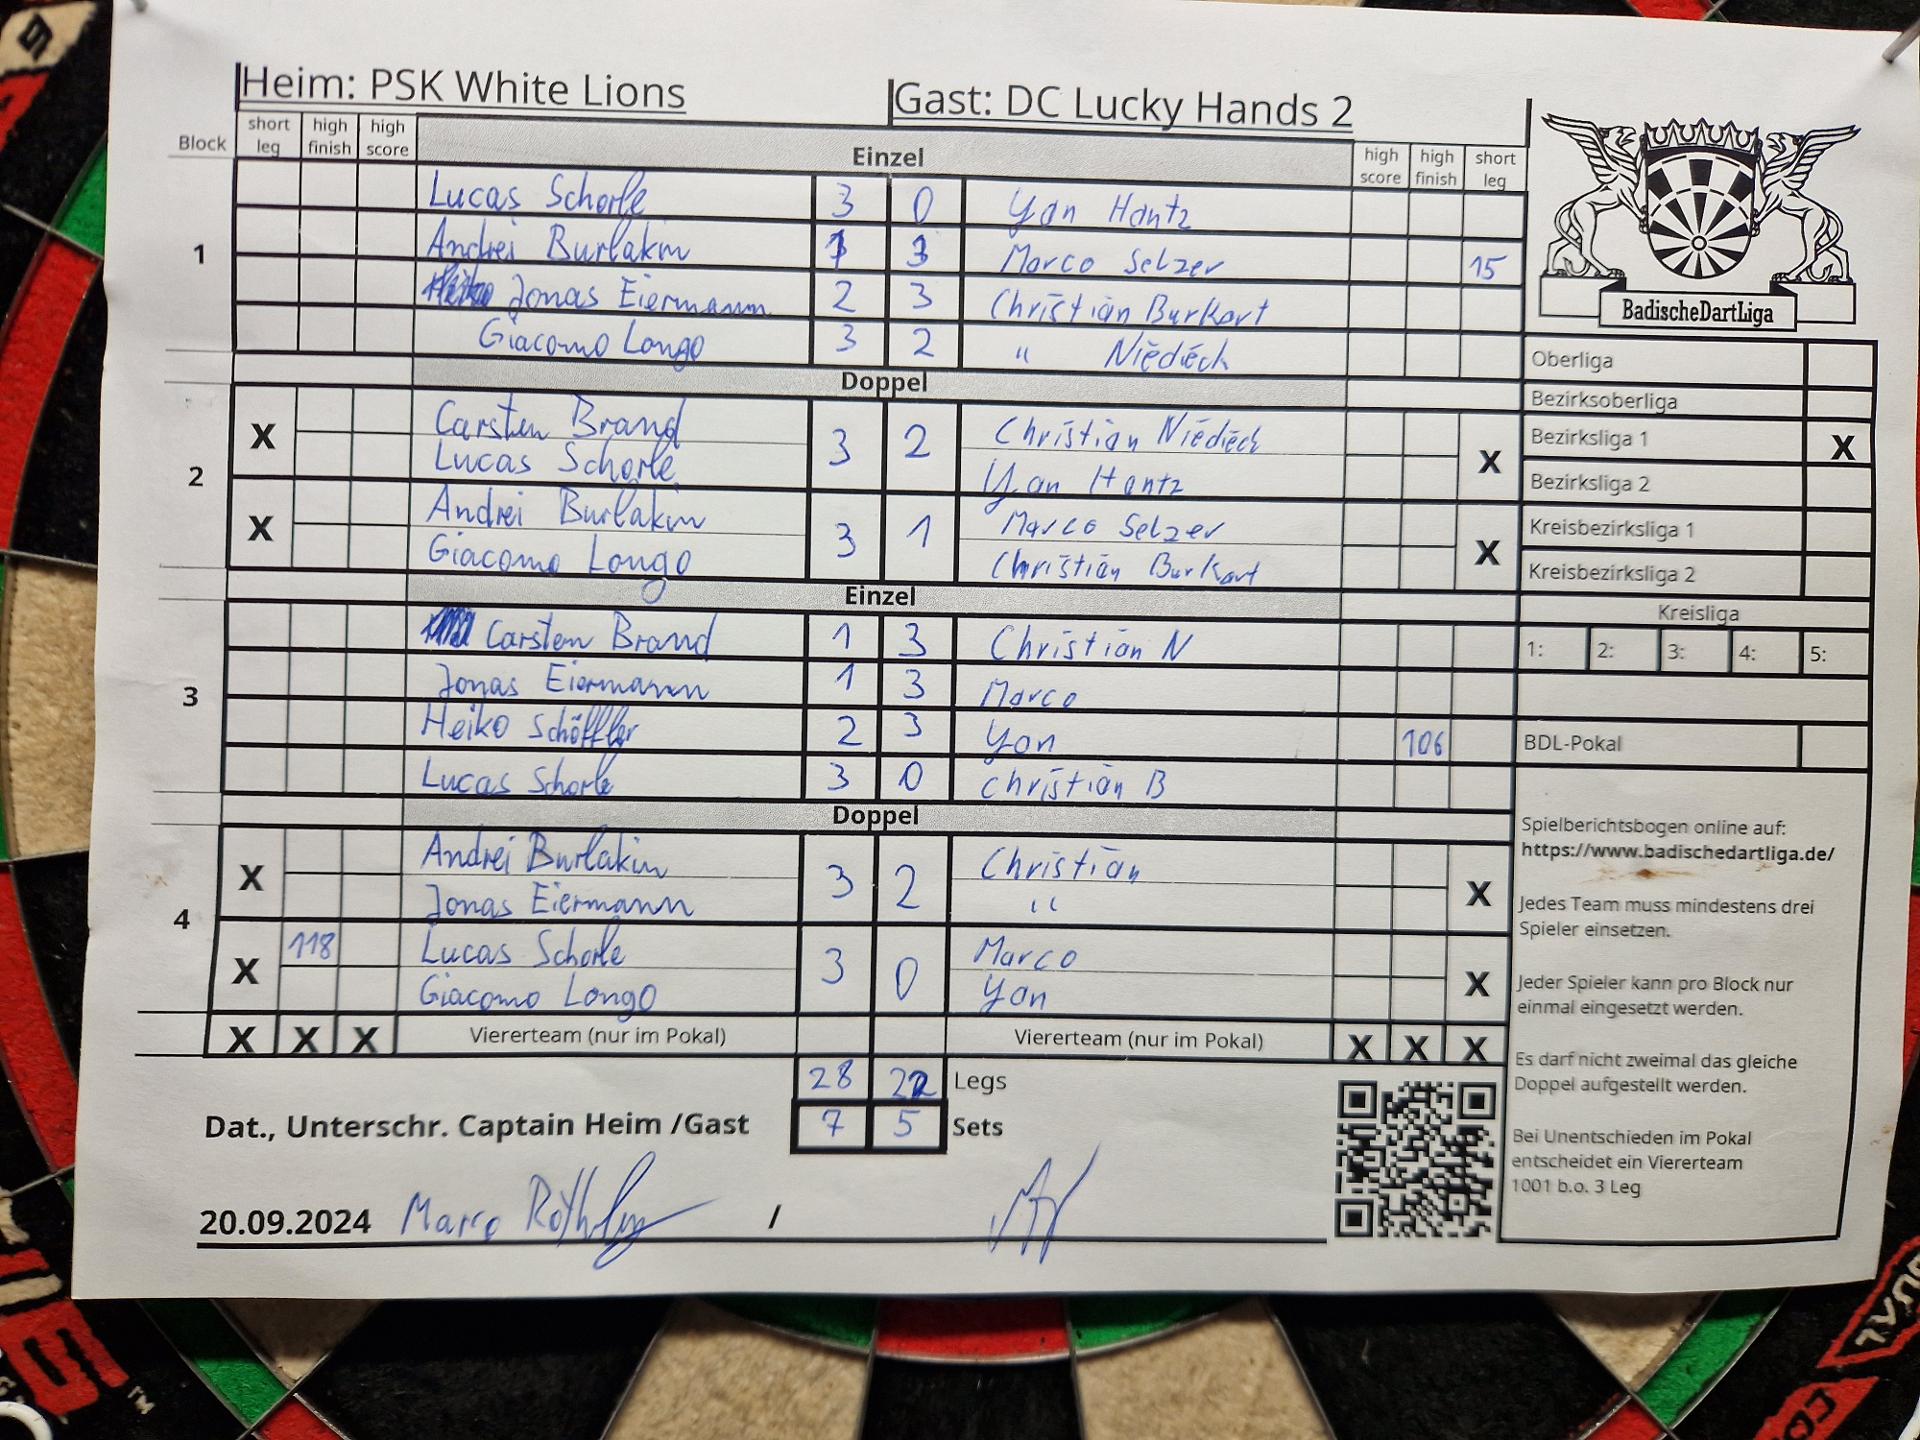 Heim: PSK White Lions Gast: DC Lucky Hands 2
Block short leg high finish high score Einzel high score high finish short leg
1
Lucas Schorle 3 0 Yan Hantz
Andrei Burlakin 1 3 Marco Selzer 15
Jonas Eiermann 2 3 Christian Burkart
Giacomo Longo 3 2 " Niedieck
BadischeDartLiga
Doppel
2
X Carsten Brand 3 2 Christian Niedieck X
Lucas Schorle Yan Hantz
X Andrei Burlakin 3 1 Marco Selzer X
Giacomo Longo Christian Burkart
Einzel
3
Carsten Brand 1 3 Christian N
Jonas Eiermann 1 3 Marco
Heiko Schöffler 2 3 Yan 106
Lucas Schorle 3 0 Christian B
Doppel
4
X Andrei Burlakin 3 2 Christian X
Jonas Eiermann "
X 118 Lucas Schorle 3 0 Marco X
Giacomo Longo Yan
X X X Viererteam (nur im Pokal) Viererteam (nur im Pokal) X X X
28 22 Legs
7 5 Sets
Dat., Unterschr. Captain Heim /Gast
20.09.2024 Marco /
Oberliga
Bezirksoberliga
Bezirksliga 1 X
Bezirksliga 2
Kreisbezirksliga 1
Kreisbezirksliga 2
Kreisliga
1: 2: 3: 4: 5:
BDL-Pokal
Spielberichtsbogen online auf:
https://www.badischedartliga.de/
Jedes Team muss mindestens drei
Spieler einsetzen.
Jeder Spieler kann pro Block nur
einmal eingesetzt werden.
Es darf nicht zweimal das gleiche
Doppel aufgestellt werden.
Bei Unentschieden im Pokal
entscheidet ein Viererteam
1001 b.o. 3 Leg